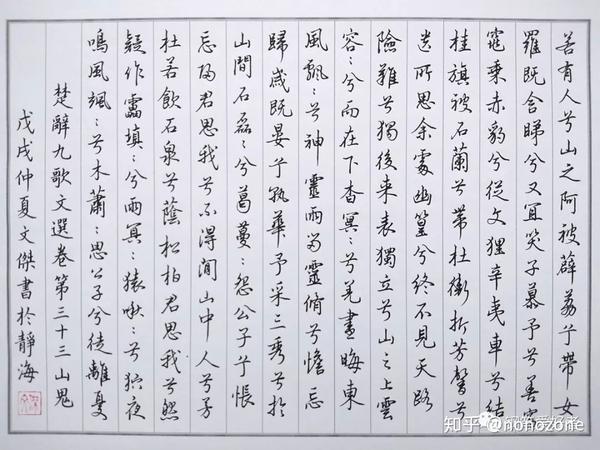 若有人兮山之阿被薜荔兮帶女
羅既含睇兮又宜笑子慕予兮善窈
窕乘赤豹兮從文狸辛夷車兮結
桂旗被石蘭兮帶杜衡折芳馨兮
遺所思余處幽篁兮終不見天路
險難兮獨後来表獨立兮山之上雲
容:兮而在下杳冥:兮羌晝晦東
風飄:兮神靈雨留靈脩兮憺忘
歸歲既晏兮孰華予采三秀兮於
山間石磊:兮葛蔓:怨公子兮悵
忘歸君思我兮不得閒山中人兮芳
杜若飲石泉兮蔭松柏君思我兮然
疑作靁填:兮雨冥:猿啾:兮狖夜
鳴風颯:兮木蕭:思公子兮徒離憂
楚辭九歌文選卷第三十三山鬼
戊戌仲夏文傑書於靜海
知乎 @nonozone